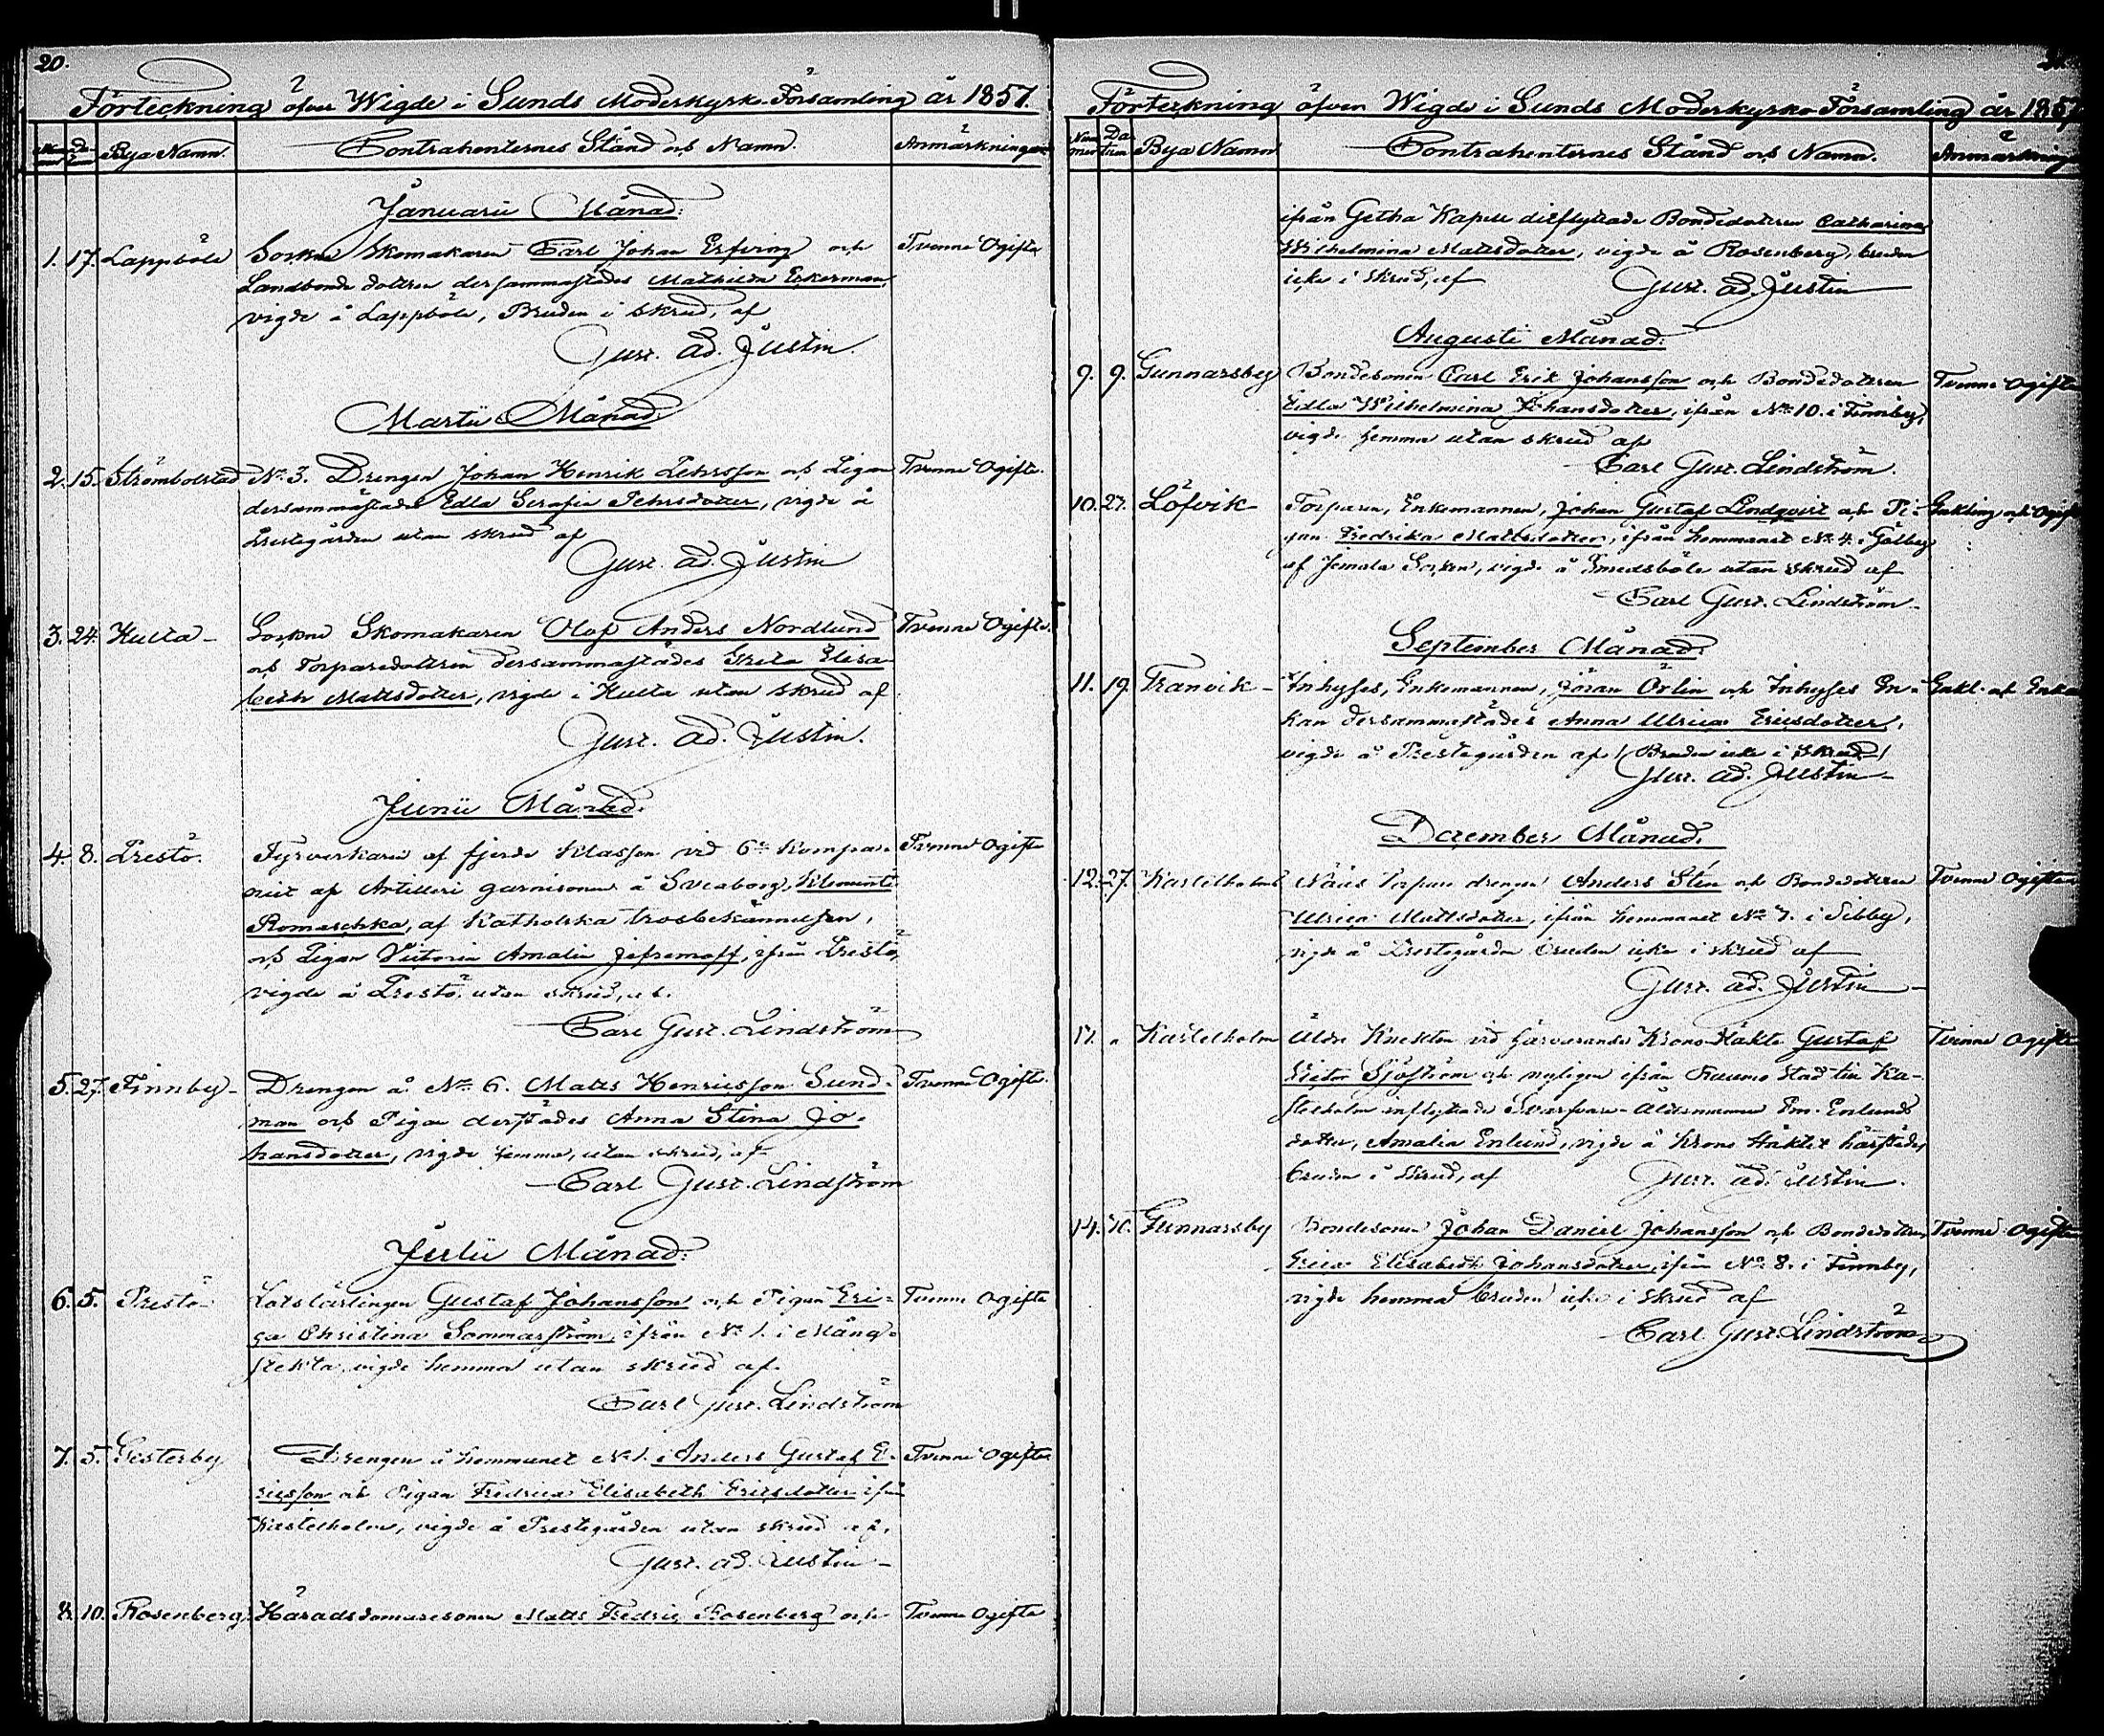 20.
Förteckning öfver Wigde i Sunds Moderkyrko-Församling år 1857.
Bya Namn. Contrahenternes Stånd och Namn. Anmärkningar
Januarii Månad.
1. 17. Lappböle Sockne Skomakaren Carl Johan Erfving och Tvenne Ogifta
Landbonde dottren dersammastädes Mathilda Eckerman,
vigde å Lappböle, Bruden i skrud, af
Gust. Ad. Justin.
Martii Månad.
2. 15. Strömbolstad No. 3. Drengen Johan Henrik Pehrsson och Pigan Tvenne Ogifta.
dersammastädes Edla Serafia Pehrsdotter, vigde å
Prestegården utan skrud af
Gust. Ad. Justin
3. 24. Hulta Sockne Skomakaren Olof Anders Nordlund Tvenne Ogifta.
och Torparedottren dersammastädes Greta Elisa-
beth Mattsdotter, vigde i Hulta utan skrud af
Gust. Ad. Justin.
Junii Månad.
4. 8. Prestö. Fyrverkaren af fjerde Klassen vid 6te Kompa- Tvenne Ogifta
niet af Artilleri garnisonen å Sveaborg,
Romaschka, af Katholska trosbekännelsen,
och Pigan Victoria Amalia Jefremoff, ifrån Prestö,
vigde å Prestö, utan skrud, af.
Carl Gust. Lindström
5. 27. Finnby Drengen å No. 6. Matts Henricsson Sund- Tvenne Ogifta.
man och Pigan derstädes Anna Stina Jo-
hansdotter, vigde hemma, utan skrud, af
Carl Gust. Lindström
Julii Månad.
6. 5. Prestö Lotslärlingen Gustaf Johansson och Pigan Eri- Tvenne Ogifta
ca Christina Sommarström, ifrån No 1. i Mång-
stekta, vigde hemma utan skrud af
Carl Gust. Lindström
7. 5. Gesterby Drengen å hemmanet No 1. Anders Gustaf E- Tvenne Ogifta
ricsson och Pigan Fredrica Elisabeth Ericsdotter ifrån
Kastelholm, vigde å Prestegården utan skrud af,
Gust. Ad. Justin
8. 10. Rosenberg Häradsdomaresonen Matts Fredric Rosenberg och Tvenne Ogifta
Förteckning öfver Wigde i Sunds Moderkyrko-Församling år 1857
Bya Namn Contrahenternes Stånd och Namn. Anmärkningar
ifrån Getha Kapell ditflyttade Bondedottren Catharina
Wilhelmina Mattsdotter, vigde å Rosenberg, bruden
icke i skrud, af Gust. Ad. Justin
Augusti Månad.
9. 9. Gunnarsby Bondesonen Carl Erik Johansson och Bondedottren Tvenne Ogifta
Edla Wilhelmina Johansdotter, ifrån No 10. i Finnby,
vigde hemma utan skrud af
Carl Gust. Lindström.
10. 27. Löfvik Torparen, Enkemannen, Johan Gustaf Lindqvist och Pi- Enkling och Ogift
gan Fredrika Mattsdotter, ifrån hemmanet No 4. i Gölby
af Jomala Socken, vigde å Smedsböle utan skrud af
Carl Gust. Lindström
September Månad.
11. 19. Tranvik Inhyses, Enkemannen, Jöran Örlin och Inhyses En- Enkl. och Enka
kan dersammastädes Anna Ulrica Ericsdotter,
vigde å Prestegården af (Bruden icke i skrud)
Gust. Ad. Justin
December Månad.
12. 27. Kastelholm Näse Torpare drengen Anders Sten och Bondedottren Tvenne Ogifta
Ulrica Mattsdotter, ifrån hemmanet No 7. i Sibby,
vigde å Prestegården bruden icke i skrud af
Gust. Ad. Justin
Kastelholm Äldre Knekten vid härvarande Krono Häkte Gustaf Tvenne Ogifta
Victor Sjöström och nyligen ifrån Raumo Stad till Ka-
stelholm inflyttade Svarfvare-Åldermannen Enlunds
dotter, Amalia Enlund, vigde å Krono Häktet härstädes,
bruden i skrud, af Gust. Ad. Justin.
14. Gunnarsby Bondesonen Johan Daniel Johansson och Bondedottren Tvenne Ogifta
Elisabeth Johansdotter, ifrån No 8. i Finnby,
vigde hemma bruden icke i skrud af
Carl Gust. Lindström